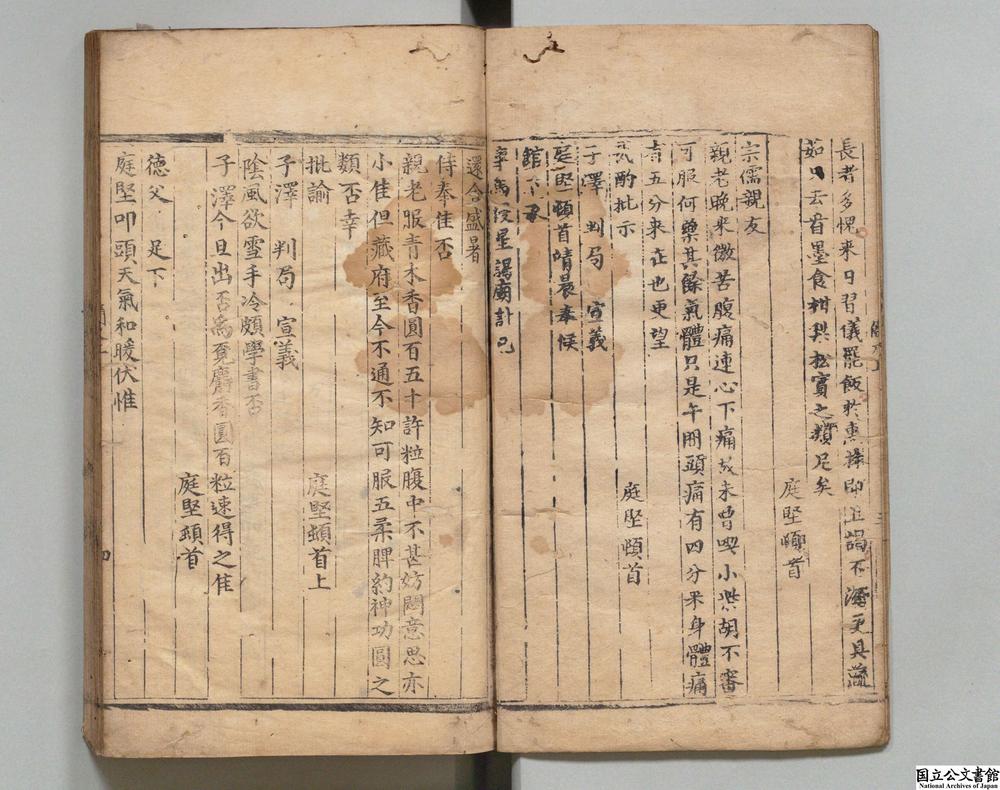 長者多愧来日習儀罷飯於惠林即上謁不濟更具蔬
茹只去首墨食柑棋松實之類足矣
庭堅頓首
宗儒親友
親老晚来微苦腹痛連心下痛故未曾喫小柴胡不審
可服何藥其餘氣體只是午間頭痛有四分来身體痛
有五分来在也更望
批示
庭堅頓首
子澤 判局 宣義
庭堅頓首晴晨奉候
館下承
車馬後星謁廟計已
還舍盛暑
侍奉佳否
親老服青木香圓百五十許粒腹中不甚妨悶意思亦
小佳但藏府至今不通不知可服五柔脾約神功圓之
類否幸
批諭
庭堅頓首上
子澤 判局 宣義
陰風欲雪手冷頗學書否
子澤今旦出否為覓麝香圓百粒速得之佳
庭堅頓首
德父 足下
庭堅叩頭天氣和暖伏惟
四
国立公文書館
National Archives of Japan